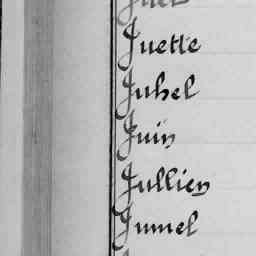 Juel
Juette
Juhel
Juin
Jullien
Jumel